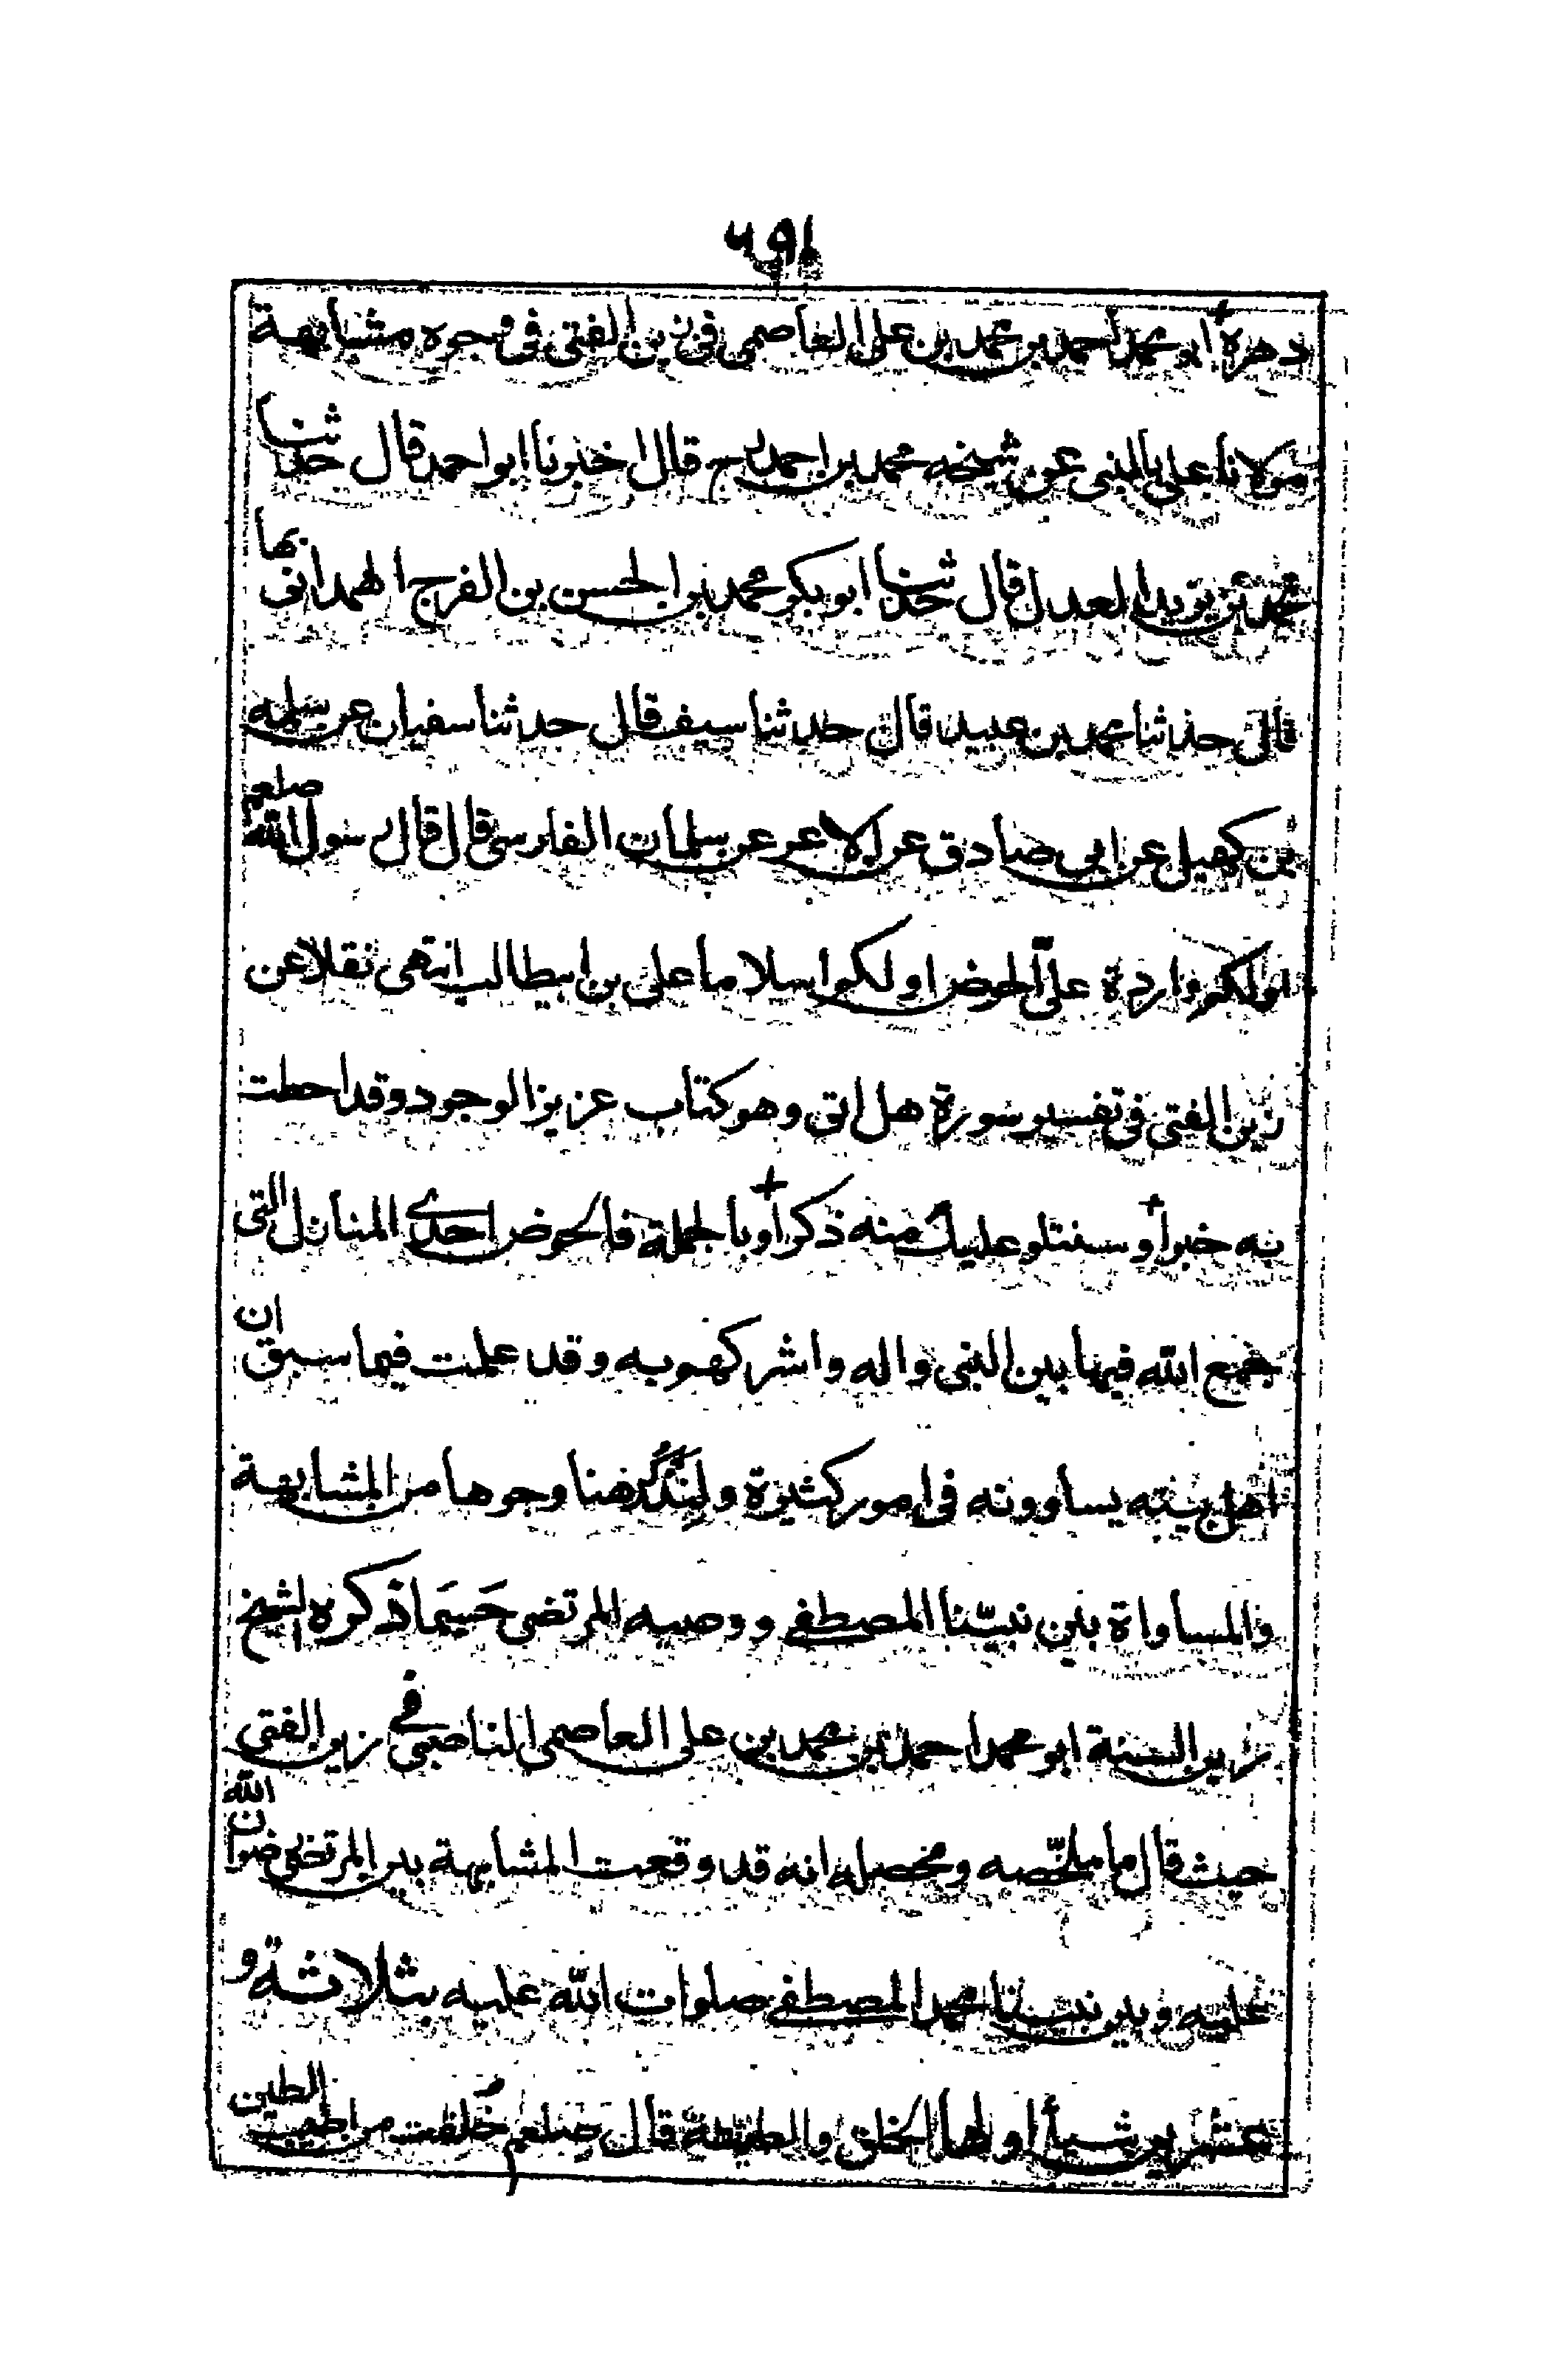 دهره ابو محمد احمد بن محمد بن علي العاصمي في زين الفتى في وجوه مشابهة
مولانا علي بالنبي عن شيخه محمد بن احمد رح قال اخبرنا ابو احمد قال حدثنا
محمد بن يزيد العدل قال حدثنا ابو بكر محمد بن الحسن بن الفرج الهمداني بها
قال حدثنا محمد بن عبيد قال حدثنا سيف قال حدثنا سفيان عن سلمه
بن كهيل عن ابي صادق عن الاعر عن سلمان الفارسي قال قال رسول الله صلعم
اولكم واردة عليّ الحوض اولكم اسلاما علي بن ابيطالب انتهى نقلا عن
زين الفتى في تفسير سورة هل اتى وهو كتاب عزيز الوجود وقد احطت
به خبرا وسنتلو عليك منه ذكرا وبالجملة فالحوض احدى المنازل التي
جمع الله فيها بين النبي واله واشركهم به وقد علمت فيما سبق ان
اهل بيته يساوونه في امور كثيرة ولنذكر هنا وجوها من المشابهة
والمساواة بين نبيّنا المصطفى ووصيه المرتضى حسبما ذكره الشيخ
زين السنة ابو محمد احمد بن محمد بن علي العاصمي الناصبي في زين الفتى
حيث قال ما ملخّصه ومحصله انه قد وقعت المشابهة بين المرتضى رضوان الله
عليه وبين نبيّنا محمد المصطفى صلوات الله عليه بثلاثة و
عشرين شيأ اولها الخلق والطينة قال صلعم خُلقت من اطيب الطين